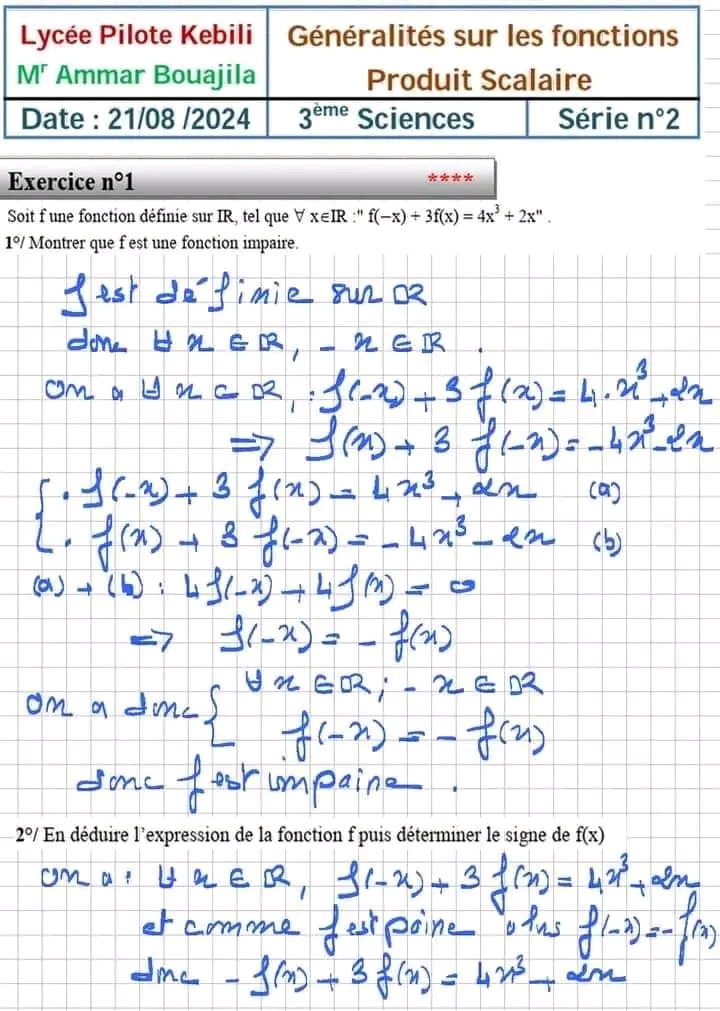 Lycée Pilote Kebili
Mr Ammar Bouajila
Généralités sur les fonctions
Produit Scalaire
Date : 21/08 /2024
3ème Sciences
Série n°2
Exercice n°1 ****
Soit f une fonction définie sur IR, tel que ∀ x∈IR :" f(−x) + 3f(x) = 4x³ + 2x" .
1°/ Montrer que f est une fonction impaire.
f est définie sur ℝ
donc ∀ x ∈ ℝ, − x ∈ ℝ .
on a ∀ x ⊂ ℝ, : f(−x) + 3 f(x) = 4·x³ + 2x
⟹ f(x) + 3 f(−x) = −4x³ − 2x
{ · f(−x) + 3 f(x) = 4x³ + 2x (a)
· f(x) + 3 f(−x) = −4x³ − 2x (b)
(a) + (b) : 4f(−x) + 4f(x) = 0
⟹ f(−x) = − f(x)
on a donc { ∀ x ∈ ℝ ; − x ∈ ℝ
f(−x) = − f(x)
donc f est impaire .
2°/ En déduire l’expression de la fonction f puis déterminer le signe de f(x)
on a : ∀ x ∈ ℝ, f(−x) + 3 f(x) = 4x³ + 2x
et comme f est paire f(−x) = −f(x)
donc − f(x) + 3 f(x) = 4x³ + 2x